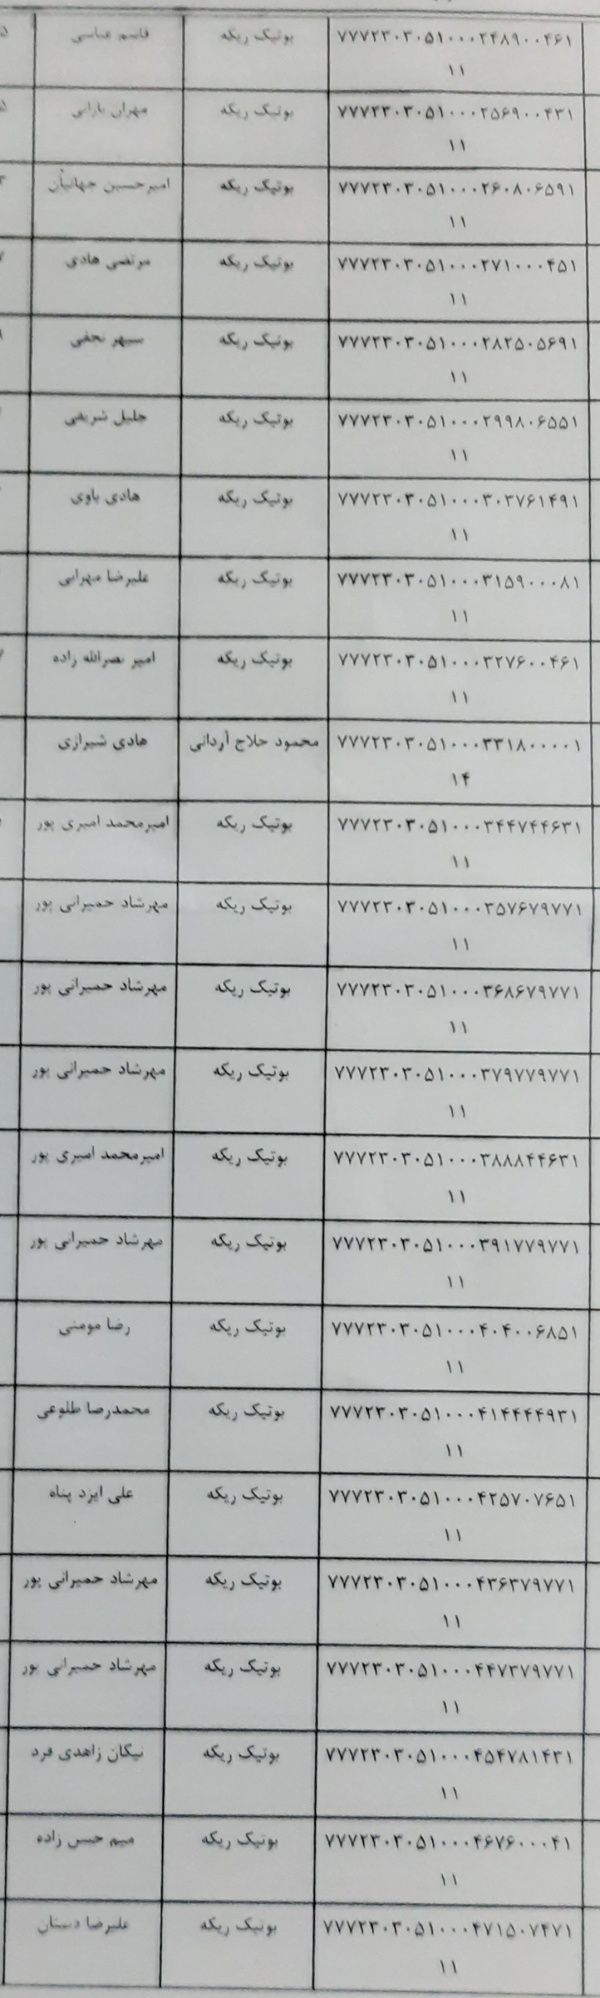 ۷۷۷۲۳۰۳۰۵۱۰۰۰۲۴۸۹۰۰۴۶۱ بوتیک ریکه قاسم عباسی
۱۱
۷۷۷۲۳۰۳۰۵۱۰۰۰۲۵۶۹۰۰۴۳۱ بوتیک ریکه مهران بارانی
۱۱
۷۷۷۲۳۰۳۰۵۱۰۰۰۲۶۰۸۰۶۵۹۱ بوتیک ریکه امیرحسین جهانیان
۱۱
۷۷۷۲۳۰۳۰۵۱۰۰۰۲۷۱۰۰۰۴۵۱ بوتیک ریکه مرتضی هادی
۱۱
۷۷۷۲۳۰۳۰۵۱۰۰۰۲۸۲۵۰۵۶۹۱ بوتیک ریکه سپهر نجفی
۱۱
۷۷۷۲۳۰۳۰۵۱۰۰۰۲۹۹۸۰۶۵۵۱ بوتیک ریکه جلیل شریفی
۱۱
۷۷۷۲۳۰۳۰۵۱۰۰۰۳۰۳۷۶۱۴۹۱ بوتیک ریکه هادی باوی
۱۱
۷۷۷۲۳۰۳۰۵۱۰۰۰۳۱۵۹۰۰۰۸۱ بوتیک ریکه علیرضا مهرابی
۱۱
۷۷۷۲۳۰۳۰۵۱۰۰۰۳۲۷۶۰۰۴۶۱ بوتیک ریکه امیر نصرالله زاده
۱۱
۷۷۷۲۳۰۳۰۵۱۰۰۰۳۳۱۸۰۰۰۰۱ محمود حلاج آردانی هادی شیرازی
۱۴
۷۷۷۲۳۰۳۰۵۱۰۰۰۳۴۴۷۴۴۶۳۱ بوتیک ریکه امیرمحمد امیری پور
۱۱
۷۷۷۲۳۰۳۰۵۱۰۰۰۳۵۷۶۷۹۷۷۱ بوتیک ریکه مهرشاد حمیرانی پور
۱۱
۷۷۷۲۳۰۳۰۵۱۰۰۰۳۶۸۶۷۹۷۷۱ بوتیک ریکه مهرشاد حمیرانی پور
۱۱
۷۷۷۲۳۰۳۰۵۱۰۰۰۳۷۹۷۷۹۷۷۱ بوتیک ریکه مهرشاد حمیرانی پور
۱۱
۷۷۷۲۳۰۳۰۵۱۰۰۰۳۸۸۸۴۴۶۳۱ بوتیک ریکه امیرمحمد امیری پور
۱۱
۷۷۷۲۳۰۳۰۵۱۰۰۰۳۹۱۷۷۹۷۷۱ بوتیک ریکه مهرشاد حمیرانی پور
۱۱
۷۷۷۲۳۰۳۰۵۱۰۰۰۴۰۴۰۰۶۸۵۱ بوتیک ریکه رضا مومنی
۱۱
۷۷۷۲۳۰۳۰۵۱۰۰۰۴۱۴۴۴۴۹۳۱ بوتیک ریکه محمدرضا طلوعی
۱۱
۷۷۷۲۳۰۳۰۵۱۰۰۰۴۲۵۷۰۷۶۵۱ بوتیک ریکه علی ایزد پناه
۱۱
۷۷۷۲۳۰۳۰۵۱۰۰۰۴۳۶۳۷۹۷۷۱ بوتیک ریکه مهرشاد حمیرانی پور
۱۱
۷۷۷۲۳۰۳۰۵۱۰۰۰۴۴۷۳۷۹۷۷۱ بوتیک ریکه مهرشاد حمیرانی پور
۱۱
۷۷۷۲۳۰۳۰۵۱۰۰۰۴۵۴۷۸۱۴۳۱ بوتیک ریکه نیکان زاهدی فرد
۱۱
۷۷۷۲۳۰۳۰۵۱۰۰۰۴۶۷۶۰۰۰۴۱ بوتیک ریکه میم حسن زاده
۱۱
۷۷۷۲۳۰۳۰۵۱۰۰۰۴۷۱۵۰۷۴۷۱ بوتیک ریکه علیرضا دستان
۱۱